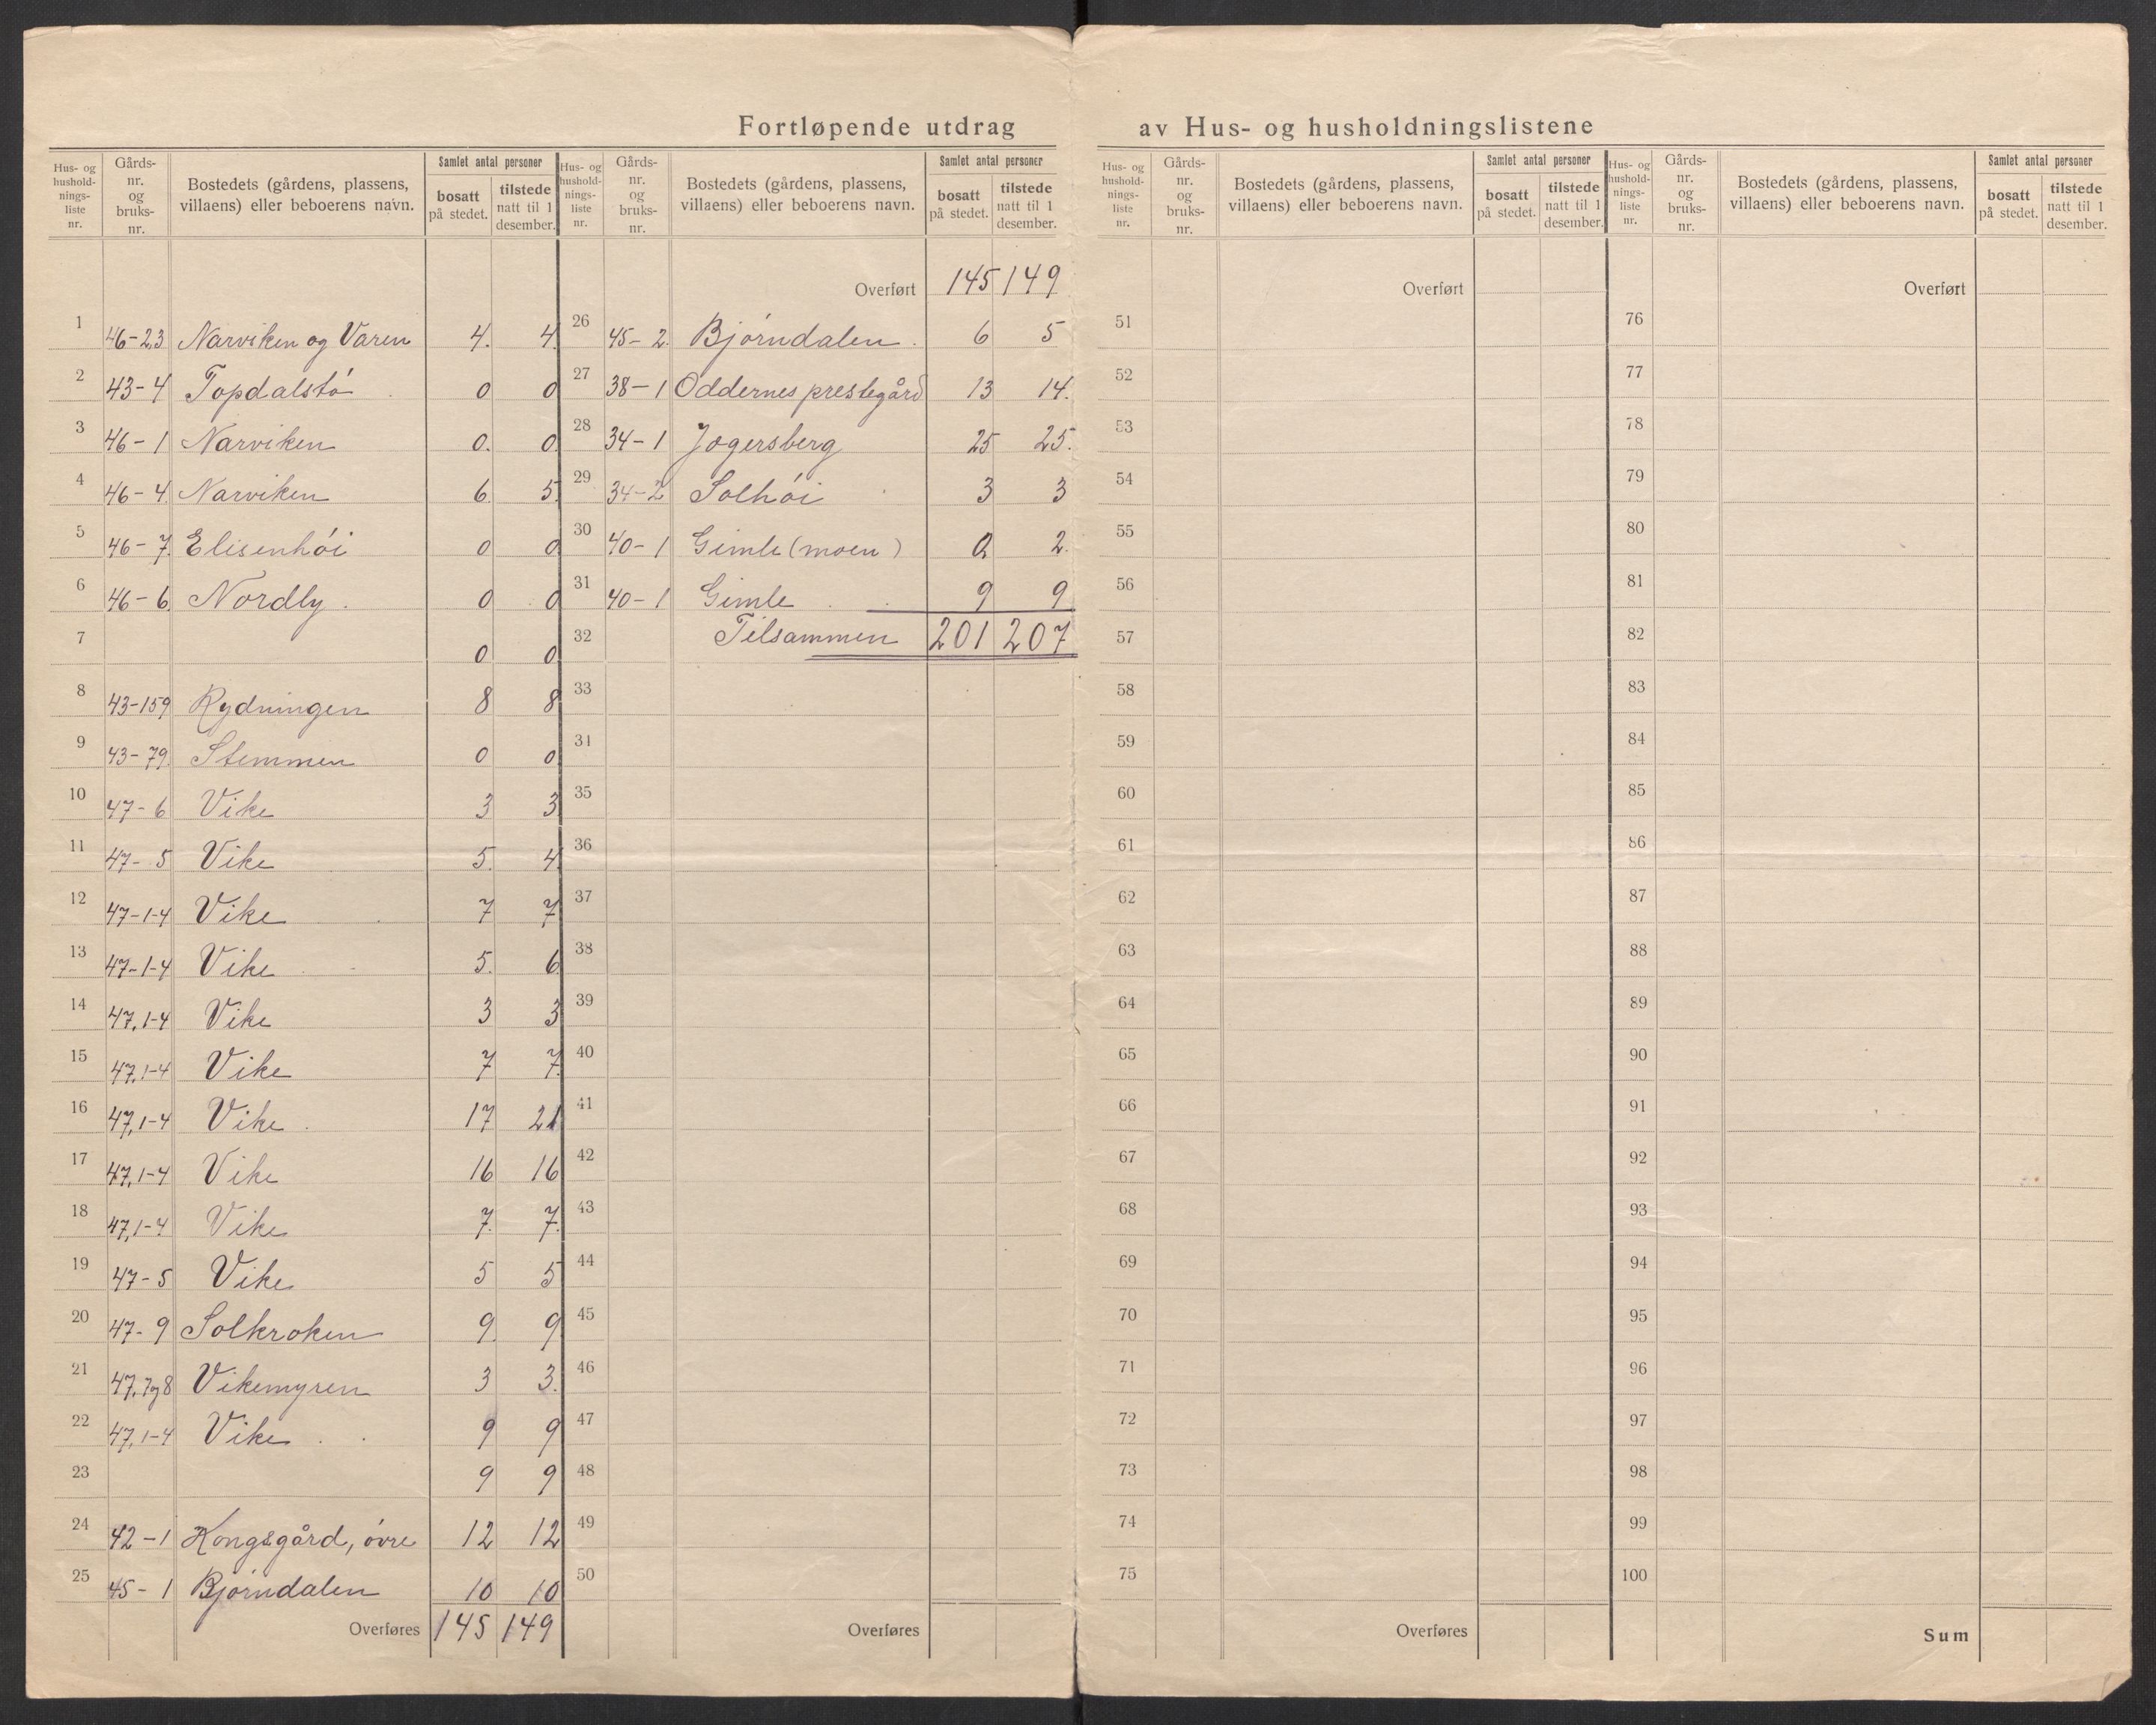 Fortløpende utdrag av Hus- og husholdningslistene
Hus- og husholdnings-liste nr. Gårds-nr. og bruks-nr. Bostedets (gårdens, plassens, villaens) eller beboerens navn. Samlet antal personer bosatt på stedet. tilstede natt til 1 desember.
1 46-23 Narviken og Varen 4. 4.
2 43-4 Topdalstó 0 0
3 46-1 Narviken 0. 0
4 46-4. Narviken 6. 5.
5 46-7. Elisenhói 0 0
6 46-6. Nordly. 0 0
7 0 0
8 43-159 Rydningen 8 8
9 43-79. Stemmen 0 0
10 47-6 Vike 3 3
11 47-5 Vike 5. 4.
12 47-1-4 Vike 7 7
13 47-1-4 Vike 5. 6
14 47,1-4 Vike 3 3
15 47,1-4 Vike 7 7.
16 47,1-4 Vike 17 21
17 47,1-4 Vike 16 16
18 47,1-4 Vike 7. 7.
19 47-5 Vike 5 5
20 47-9 Solkroken 9. 9
21 47,7og8 Vikemyren 3 3.
22 47,1-4 Vike 9 9
23 9 9
24 42-1 Kongsgård, óvre 12 12
25 45-1 Bjórndalen 10 10
Overføres 145 149
Hus- og husholdnings-liste nr. Gårds-nr. og bruks-nr. Bostedets (gårdens, plassens, villaens) eller beboerens navn. Samlet antal personer bosatt på stedet. tilstede natt til 1 desember.
Overført 145 149
26 45-2. Bjórndalen. 6 5
27 38-1 Oddernes prestegård 13 14.
28 34-1 Jogersberg 25 25.
29 34-2 Solhói 3 3
30 40-1 Gimle (moen) 0 2.
31 40-1 Gimle 9 9
32 Tilsammen 201 207
33
31
35
36
37
38
39
40
41
42
43
44
45
46
47
48
49
50
Overføres
Hus- og husholdnings-liste nr. Gårds-nr. og bruks-nr. Bostedets (gårdens, plassens, villaens) eller beboerens navn. Samlet antal personer bosatt på stedet. tilstede natt til 1 desember.
Overført
51
52
53
54
55
56
57
58
59
60
61
62
63
64
65
66
67
68
69
70
71
72
73
74
75
Overføres
Hus- og husholdnings-liste nr. Gårds-nr. og bruks-nr. Bostedets (gårdens, plassens, villaens) eller beboerens navn. Samlet antal personer bosatt på stedet. tilstede natt til 1 desember.
Overført
76
77
78
79
80
81
82
83
84
85
86
87
88
89
90
91
92
93
94
95
96
97
98
99
100
Sum